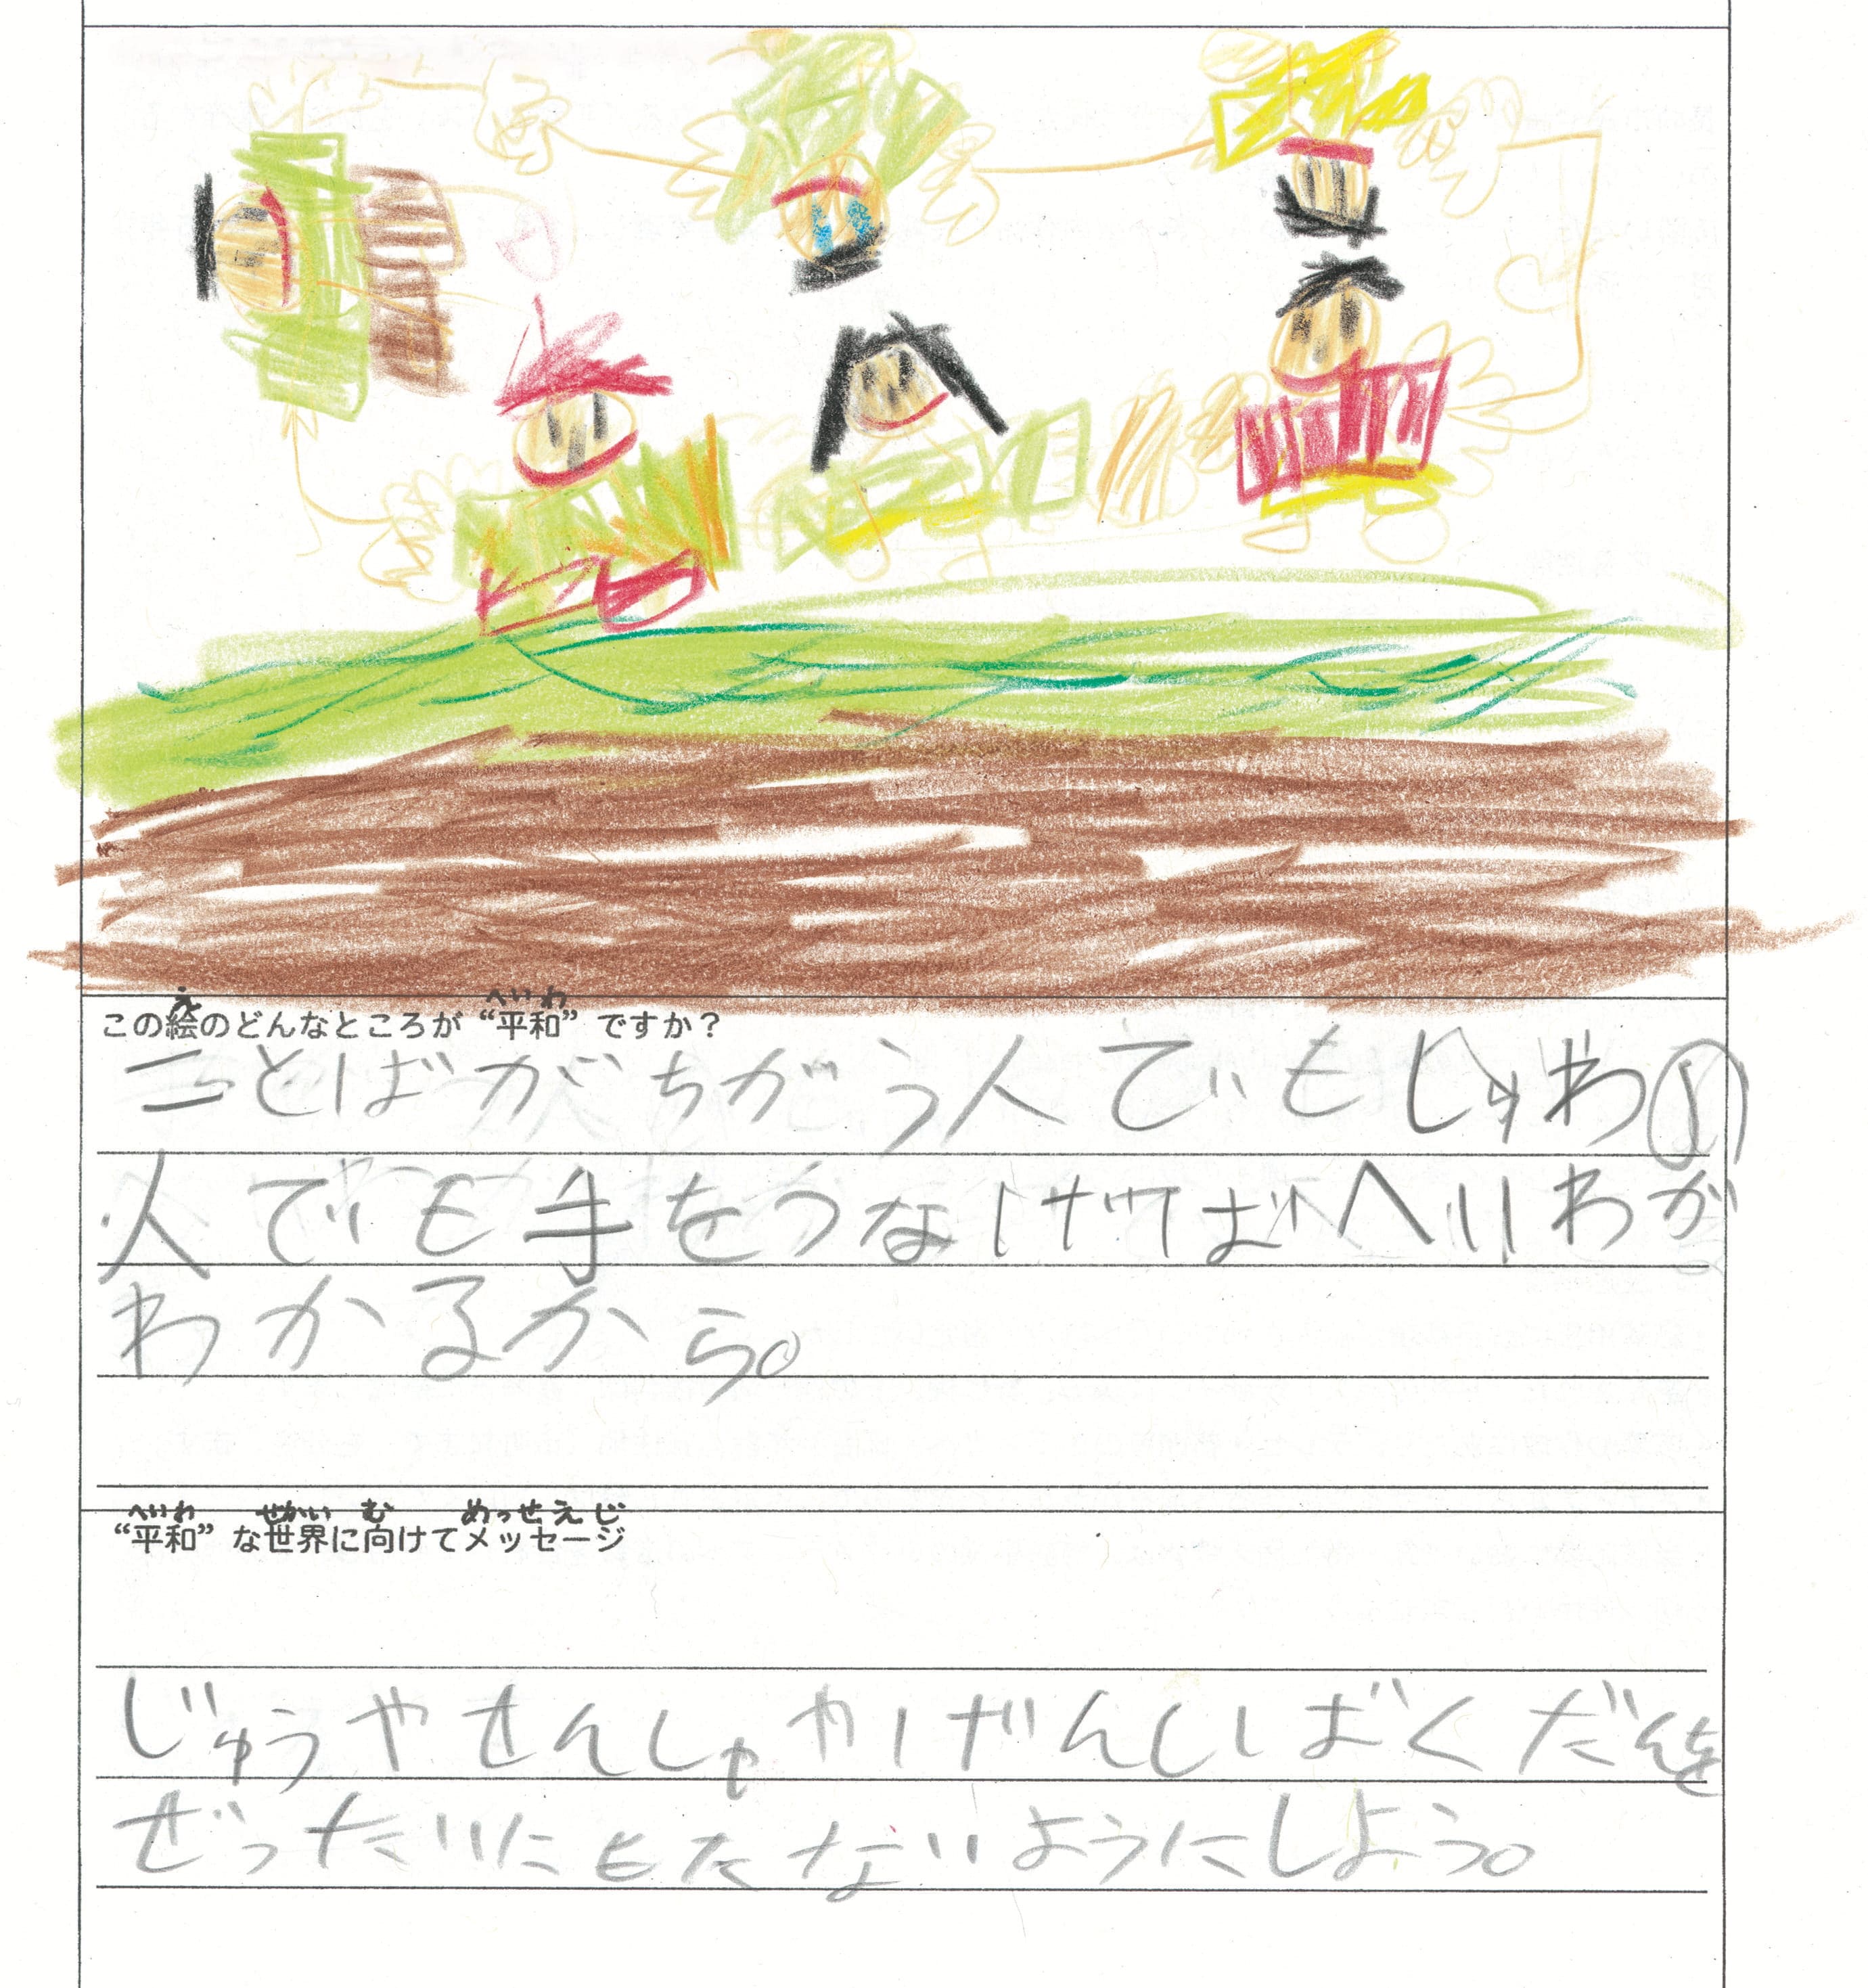 え へいわ
この絵のどんなところが“平和”ですか？
ことばがちがう人でもしゅわの
人でも手をつなげばへいわが
わかるから。
へいわ せかい む めっせえじ
“平和”な世界に向けてメッセージ
じゅうやせんしゃやげんしばくだんを
ぜったいにもたないようにしよう。